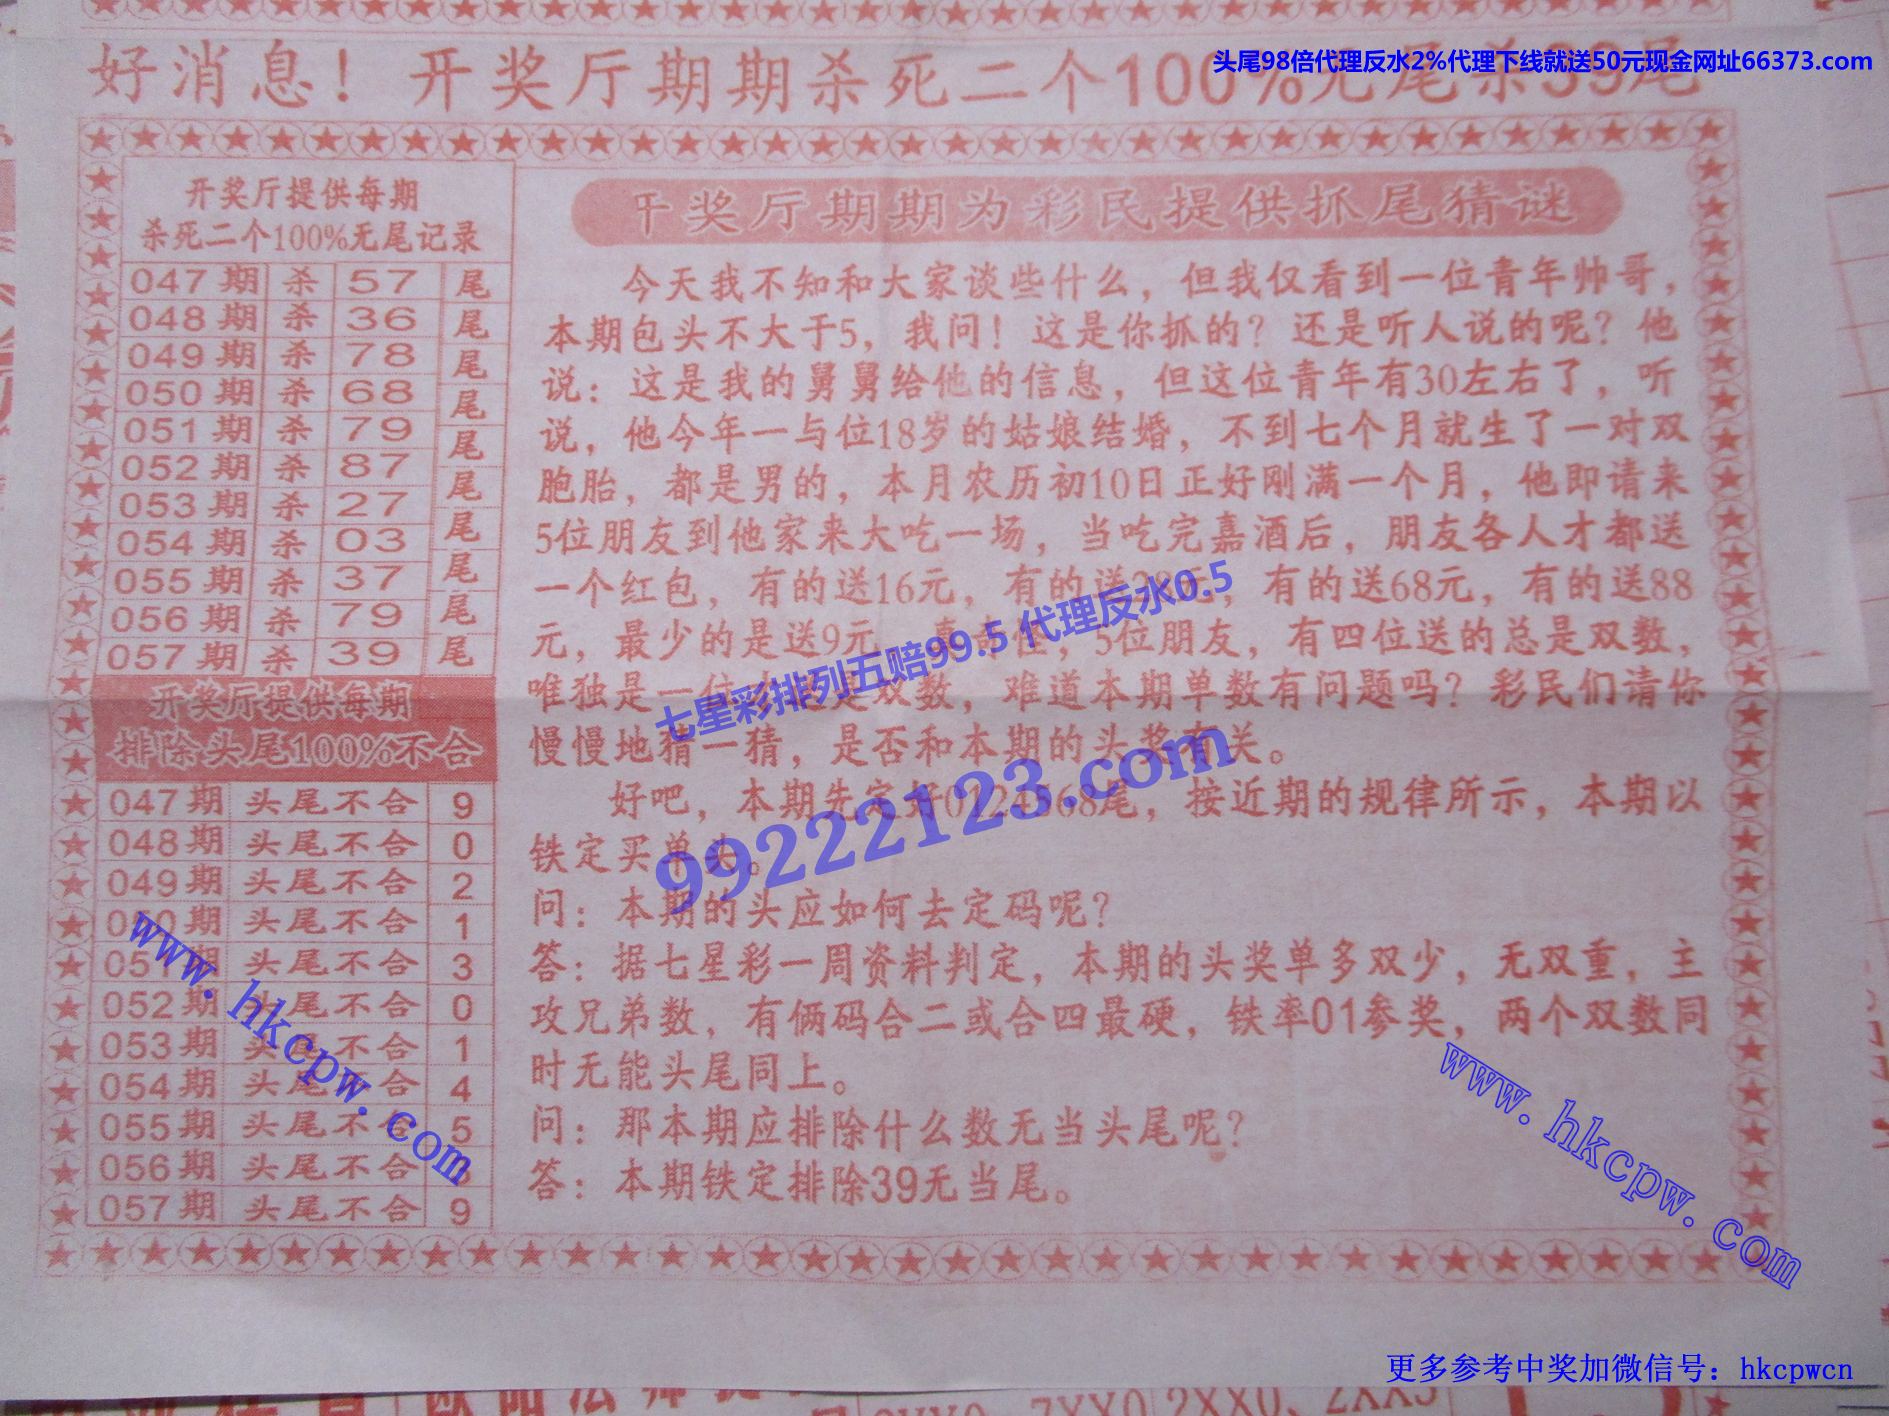 头尾98倍代理反水2%代理下线就送50元现金网址66373.com
好消息！开奖厅期期杀死二个100%无尾杀39尾
开奖厅提供每期
杀死二个100%无尾记录
047期 杀 57 尾
048期 杀 36 尾
049期 杀 78 尾
050期 杀 68 尾
051期 杀 79 尾
052期 杀 87 尾
053期 杀 27 尾
054期 杀 03 尾
055期 杀 37 尾
056期 杀 79 尾
057期 杀 39 尾
开奖厅提供每期
排除头尾100%不合
047期 头尾不合 9
048期 头尾不合 0
049期 头尾不合 2
050期 头尾不合 1
051期 头尾不合 3
052期 头尾不合 0
053期 头尾不合 1
054期 头尾不合 4
055期 头尾不合 5
056期 头尾不合
057期 头尾不合 9
奖厅期期为彩民提供抓尾猜谜
今天我不知和大家谈些什么，但我仅看到一位青年帅哥，
本期包头不大于5，我问！这是你抓的？还是听人说的呢？他
说：这是我的舅舅给他的信息，但这位青年有30左右了，听
说，他今年一与位18岁的姑娘结婚，不到七个月就生了一对双
胞胎，都是男的，本月农历初10日正好刚满一个月，他即请来
5位朋友到他家来大吃一场，当吃完嘉酒后，朋友各人才都送
一个红包，有的送16元，有的送28元，有的送68元，有的送88
元，最少的是送9元，真奇怪，5位朋友，有四位送的总是双数，
唯独是一位 是双数，难道本期单数有问题吗？彩民们请你
慢慢地猜一猜，是否和本期的头奖有关。
好吧，本期先定好0124568尾，按近期的规律所示，本期以
铁定买单头。
问：本期的头应如何去定码呢？
答：据七星彩一周资料判定，本期的头奖单多双少，无双重，主
攻兄弟数，有俩码合二或合四最硬，铁率01参奖，两个双数同
时无能头尾同上。
问：那本期应排除什么数无当头尾呢？
答：本期铁定排除39无当尾。
七星彩排列五赔99.5 代理反水0.5
99222123.com
www.hkcpw.com
www.hkcpw.com
更多参考中奖加微信号：hkcpwcn